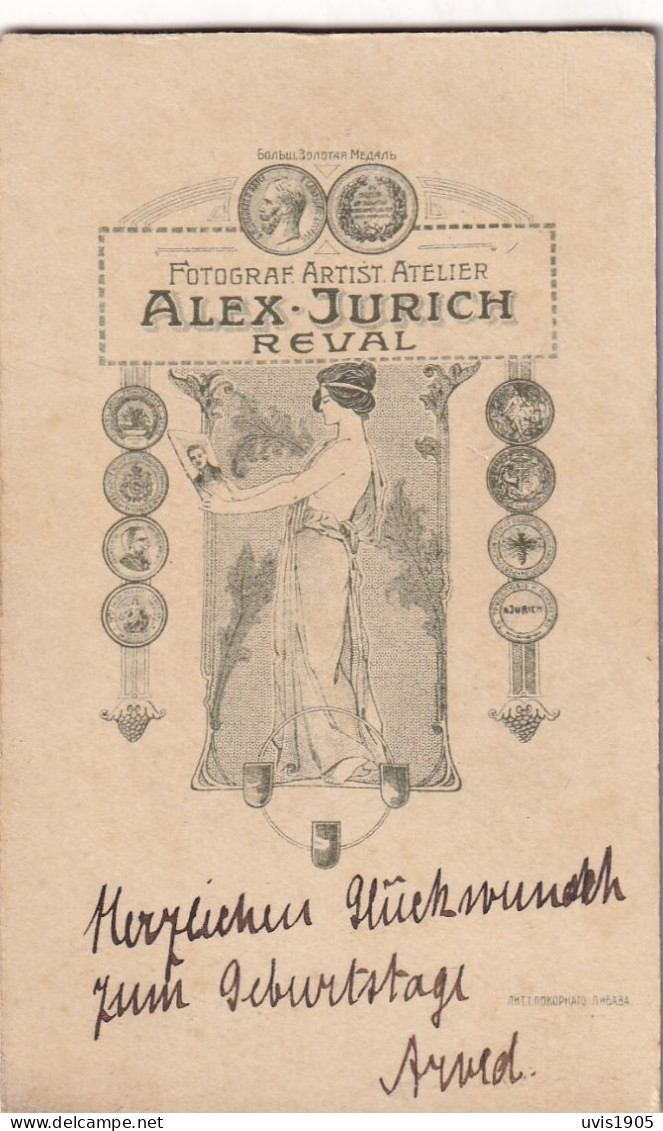 Большая Золотая Медаль
FOTOGRAF. ARTIST. ATELIER
ALEX · JURICH
REVAL
A JURICH
Herzlichen Glückwunsch
zum Geburtstage
ЛИТ.Т.ПОКОРНАГО ЛИБАВА
Arved.
delcampe.net
uvis1905